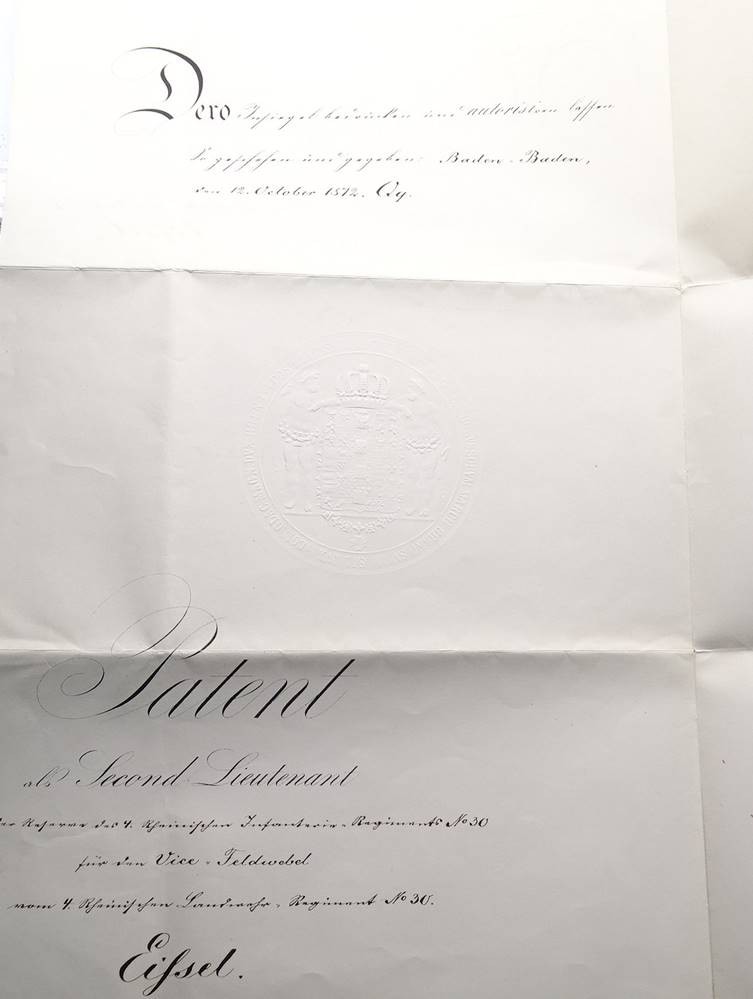 Dero Insiegel bedrucken und autorisiren lassen
So geschehen und gegeben Baden-Baden,
den 12. October 1872.
Patent
als Second-Lieutenant
der Reserve des 4. Rheinischen Infanterie-Regiments No 30
für den Vice-Feldwebel
vom 4. Rheinischen Landwehr-Regiment No 30.
Eissel.